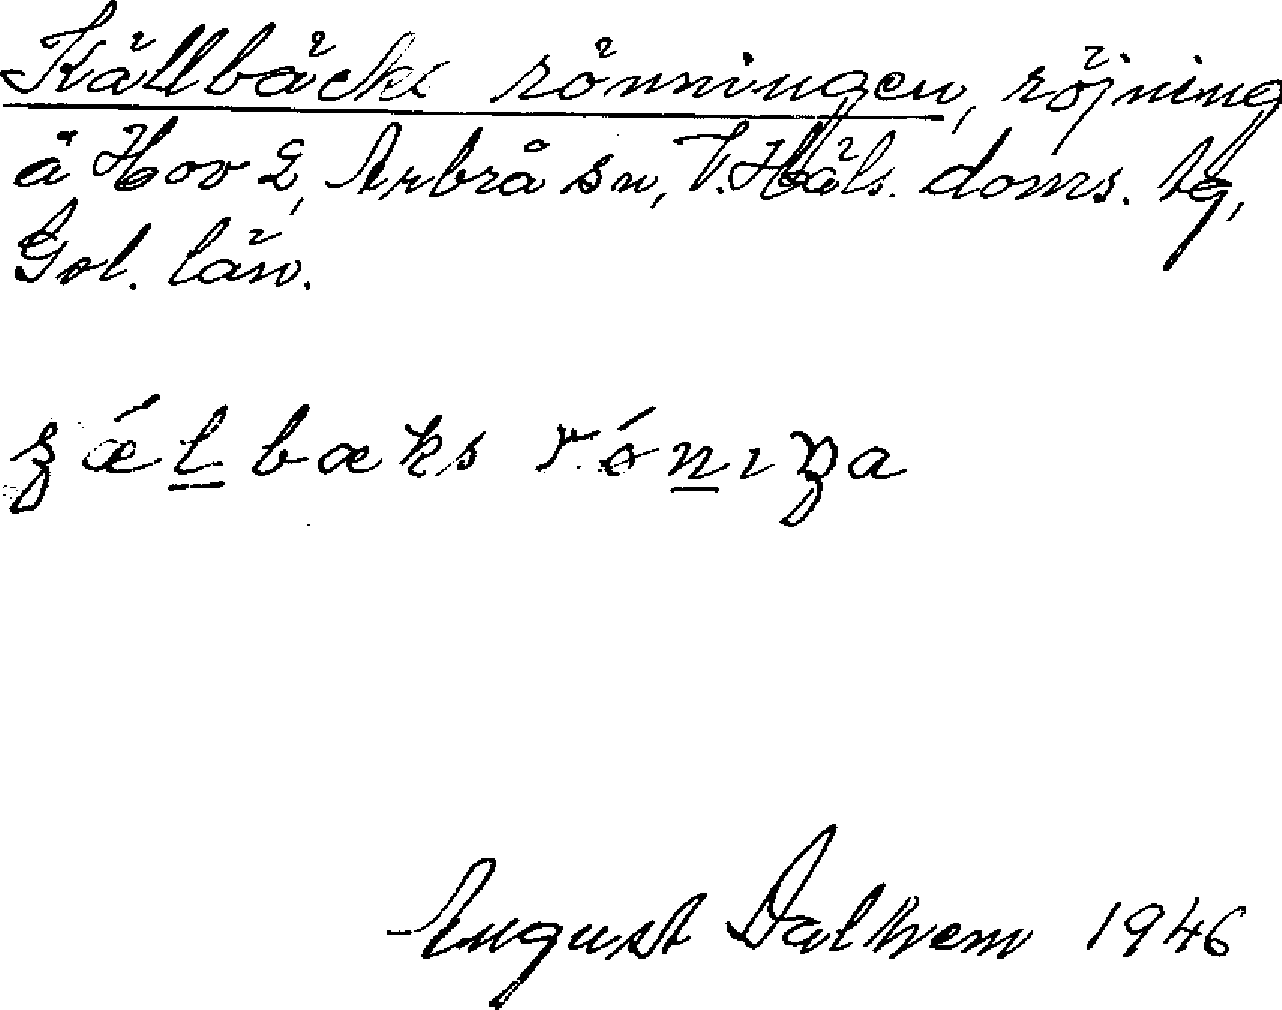 Källbäcks rönningen, röjning
å Hov 2, Arbrå sn, V. Häls. doms. tg,
Gvl. län.
August Dalhem 1946